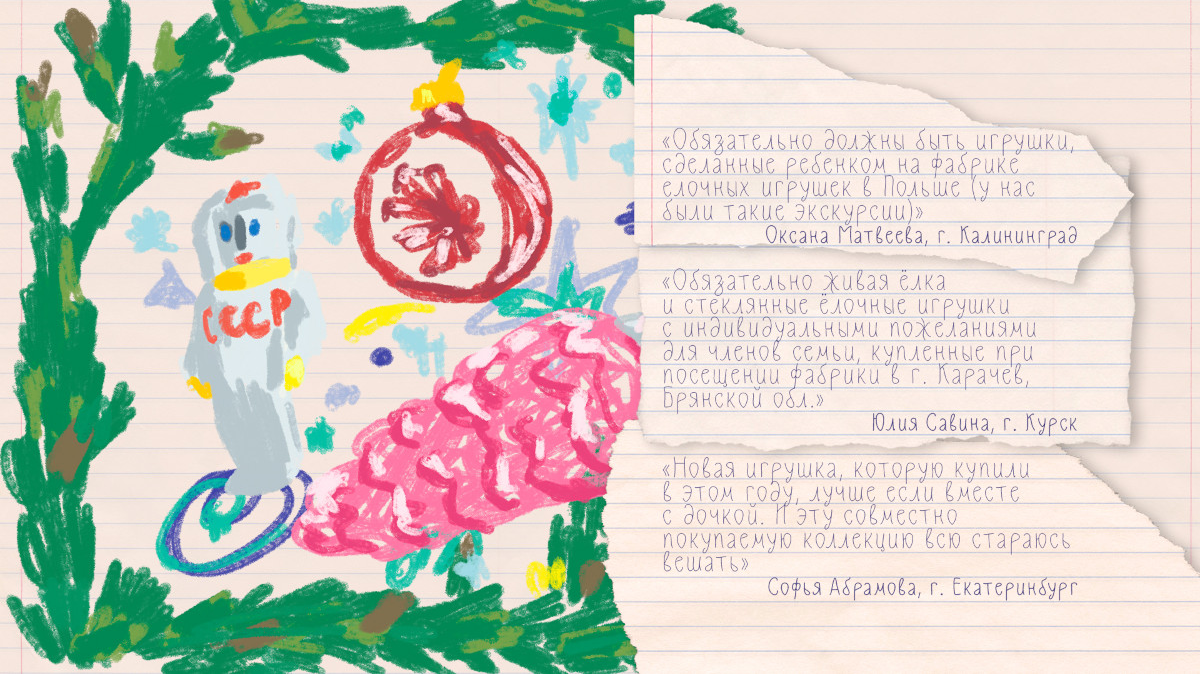 СССР
«Обязательно должны быть игрушки,
сделанные ребенком на фабрике
елочных игрушек в Польше (у нас
были такие экскурсии)»
Оксана Матвеева, г. Калининград
«Обязательно живая ёлка
и стеклянные ёлочные игрушки
с индивидуальными пожеланиями
для членов семьи, купленные при
посещении фабрики в г. Карачев,
Брянской обл.»
Юлия Савина, г. Курск
«Новая игрушка, которую купили
в этом году, лучше если вместе
с дочкой. И эту совместно
покупаемую коллекцию всю стараюсь
вешать»
Софья Абрамова, г. Екатеринбург